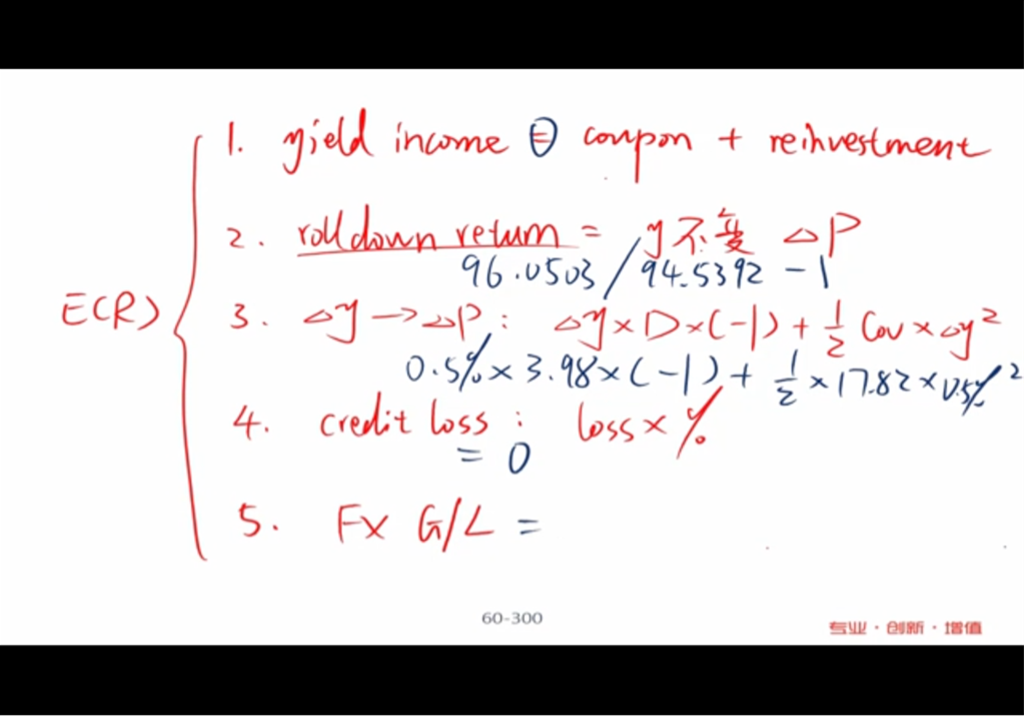 1. yield income = coupon + reinvestment
2. rolldown return = y不变 △P
96.0503/94.5392 -1
E(R)
3. △y → △P : △y×D×(-1) + 1/2 Cov × △y²
0.5%×3.98×(-1) + 1/2 ×17.82×0.5%²
4. credit loss : loss× %
= 0
5. FX G/L =
60-300
专业·创新·增值